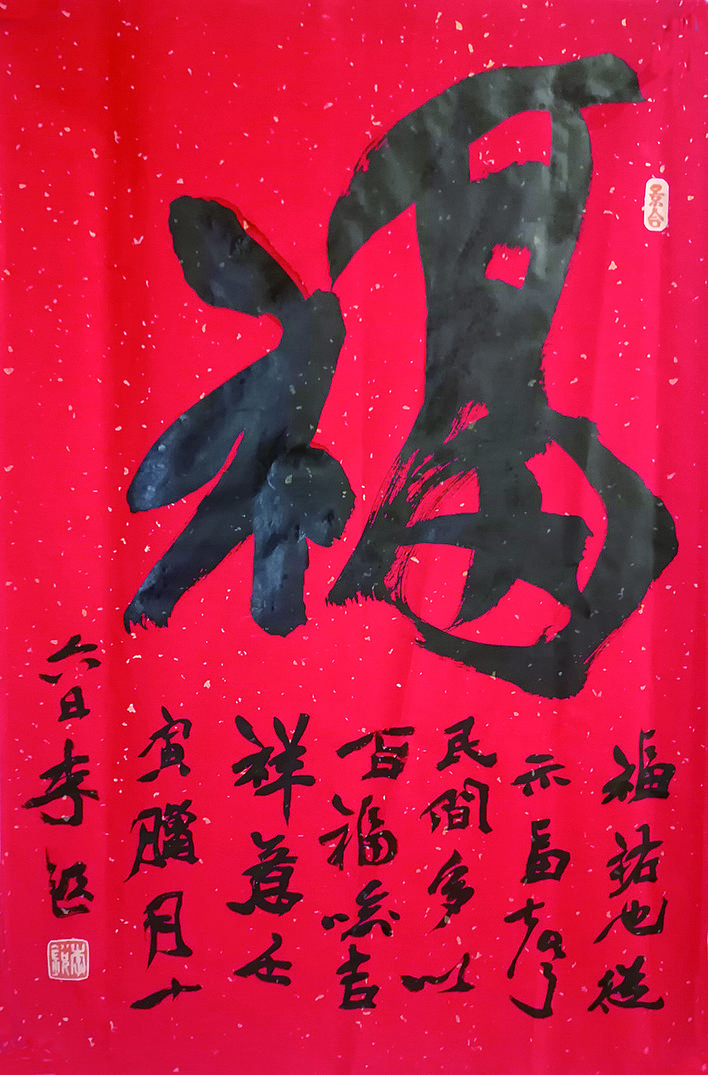 福
景合
福祐也從
示畐聲
民間多以
百福喻吉
祥意壬
寅臘月十
六日李